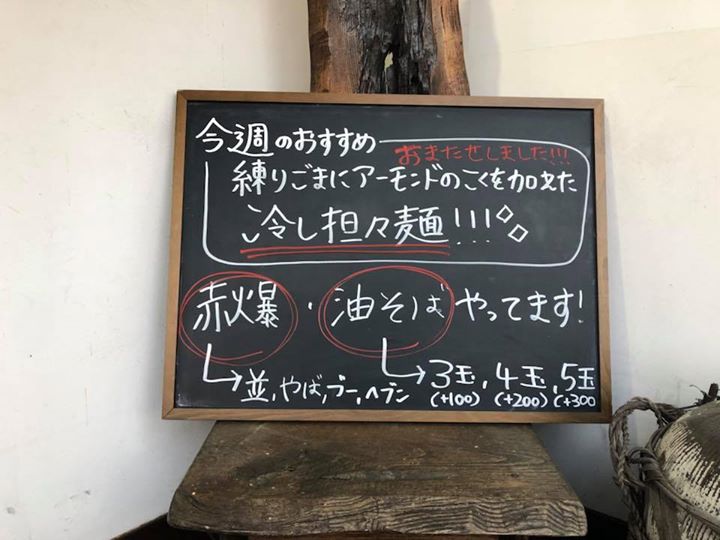 今週のおすすめ
おまたせしました!!!
練りごまにアーモンドのこくを加えた
冷し担々麺!!!
赤爆・油そば やってます!
→並,やば,ブー,ヘブン
→3玉,4玉,5玉
(+100) (+200) (+300